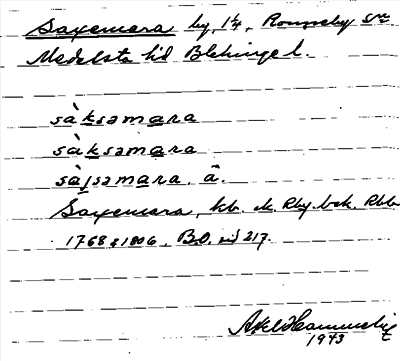 Saxemara by, 1 1/4, Ronneby sn
Medelsta hd Blekinge l.
sàksamara
sàksamara
sàısamara. â.
Saxemara, kb. M. Rby. bok. Rbb
1768 & 1806, B.O. sid 217.
Axel Hammelig
1943